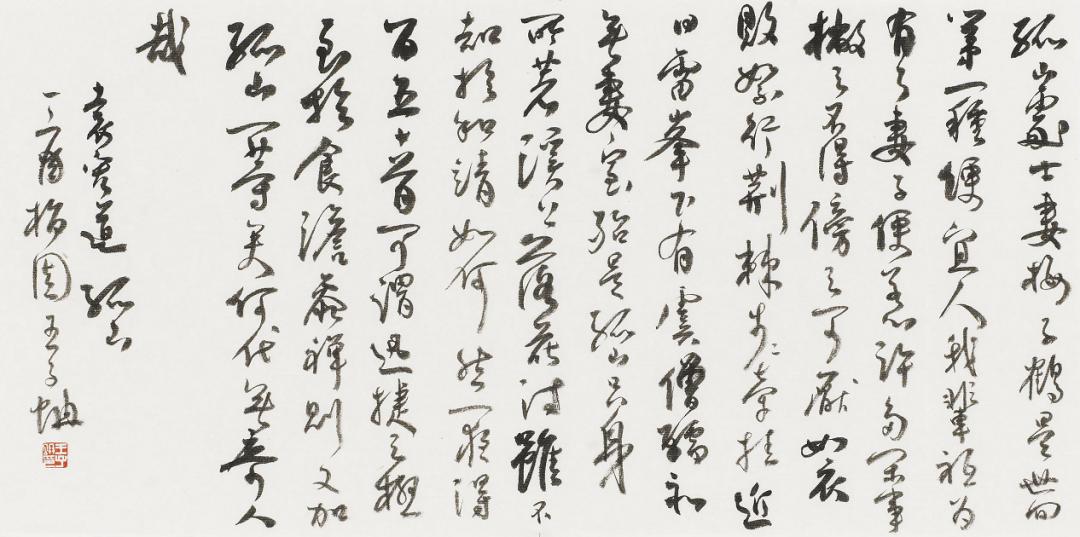 孤山處士妻梅子鶴是世間
第一種便宜人我輩祇為
有了妻子便惹許多閑事
撇之不得傍之可厭如衣
敗絮行荊棘步步牽挂近
日雷峯下有虞僧孺
無妻室殆是孤山后身
所著溪上落花詩雖不
知於和靖如何然一夜得
百五十首可謂迅捷之極
至於食澹參禪則又加
孤山一等矣何代無奇人
哉
袁宏道 孤山
丁酉梅園王子